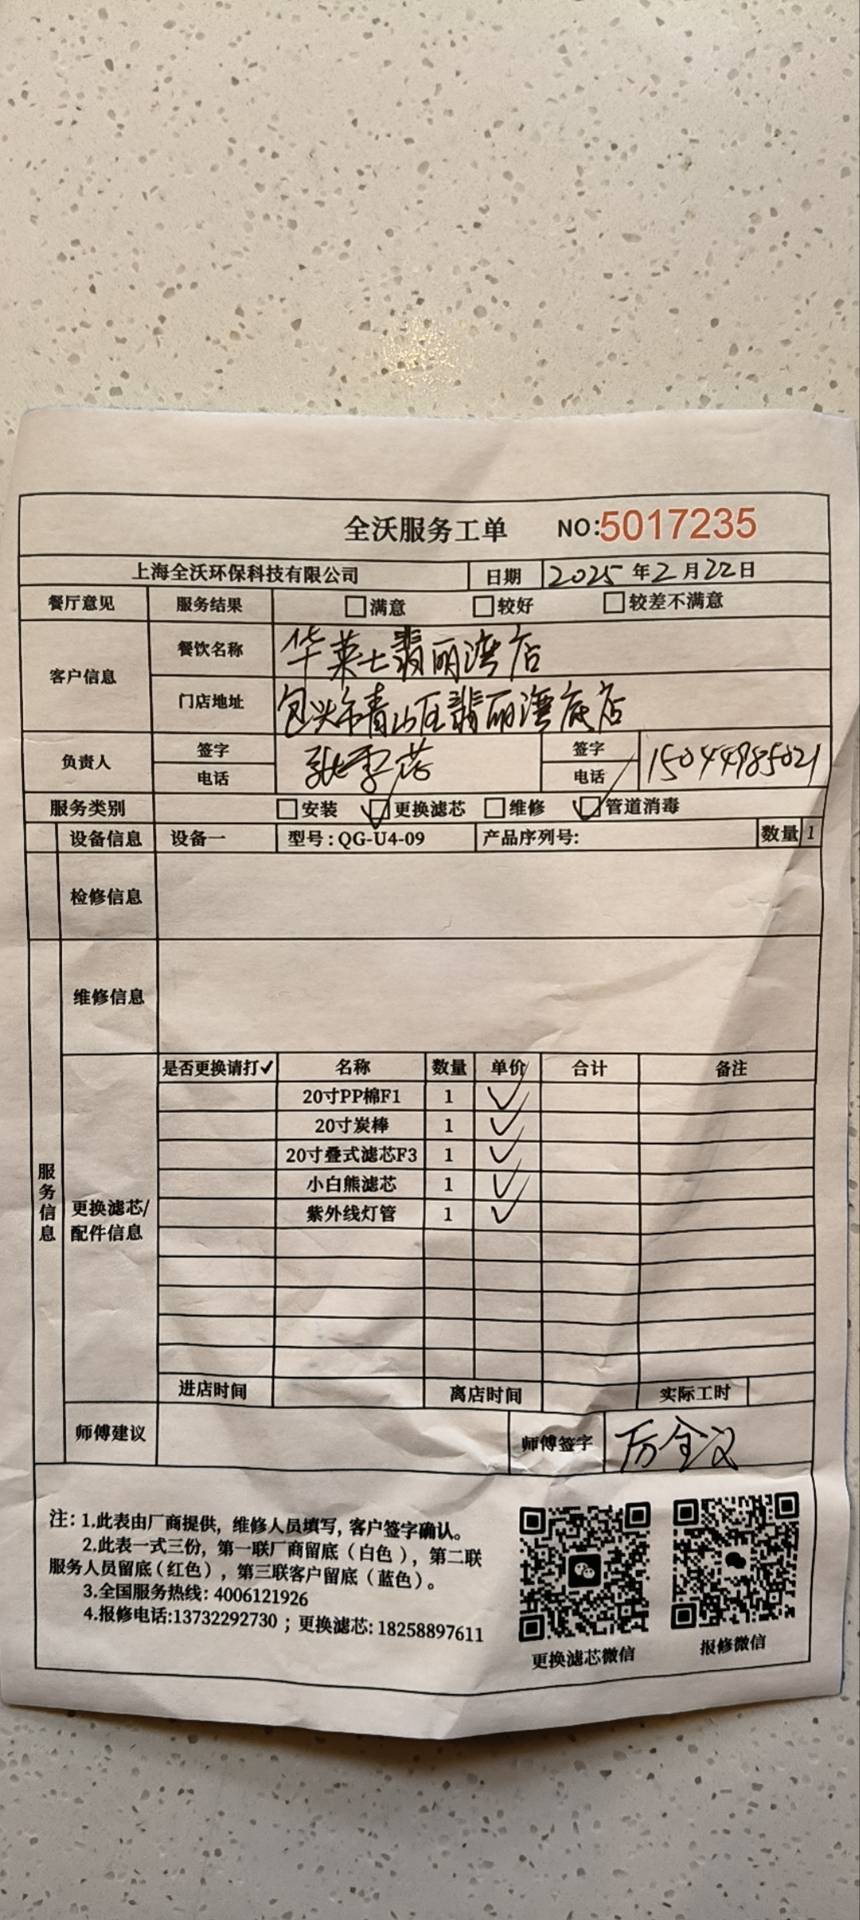 全沃服务工单 NO:5017235
上海全沃环保科技有限公司 日期 2025年2月22日
餐厅意见 服务结果 □满意 □较好 □较差不满意
客户信息 餐饮名称 华莱士翡丽湾店
门店地址 包头市青山区翡丽湾底店
负责人 签字 签字
电话 电话 15044985021
服务类别 □安装 ☑更换滤芯 □维修 ☑管道消毒
设备信息 设备一 型号:QG-U4-09 产品序列号: 数量 1
检修信息
维修信息
服务信息
更换滤芯/
配件信息
是否更换请打✓ 名称 数量 单价 合计 备注
20寸PP棉F1 1 ✓
20寸炭棒 1 ✓
20寸叠式滤芯F3 1 ✓
小白熊滤芯 1 ✓
紫外线灯管 1 ✓
进店时间 离店时间 实际工时
师傅建议 师傅签字
注: 1.此表由厂商提供, 维修人员填写, 客户签字确认。
2.此表一式三份, 第一联厂商留底(白色), 第二联
服务人员留底(红色), 第三联客户留底(蓝色)。
3.全国服务热线: 4006121926
4.报修电话:13732292730 ; 更换滤芯: 18258897611
更换滤芯微信 报修微信